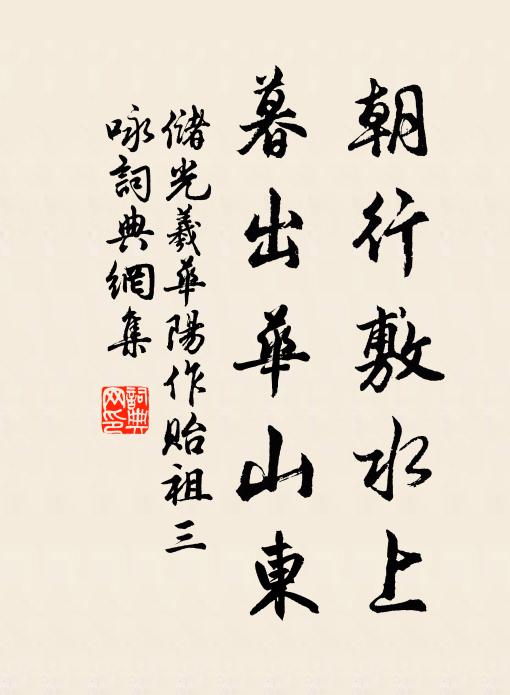 朝行敷水上
暮出華山東
儲光羲華陽作貽祖三
詠詞典網集
詞典
网印